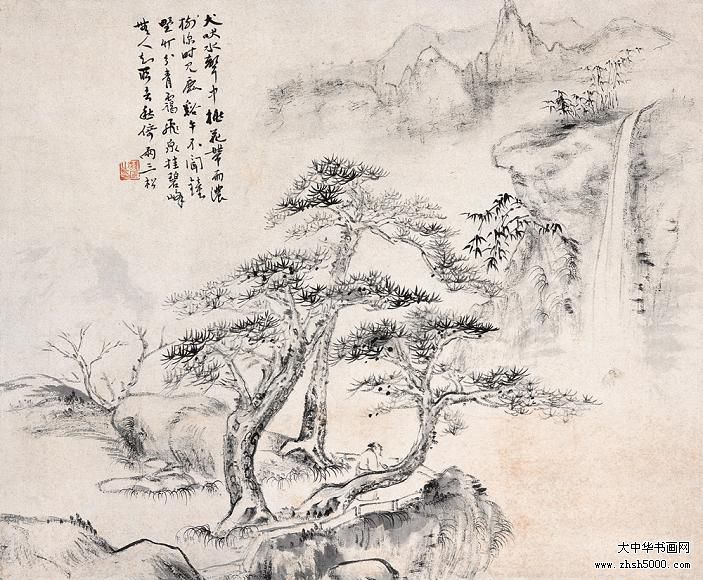 犬吠水聲中桃花帶雨濃
樹深時見鹿谿午不聞鐘
埜竹分青靄飛泉挂碧峰
無人知所去愁倚兩三松
大中华书画网
www.zhsh5000.com